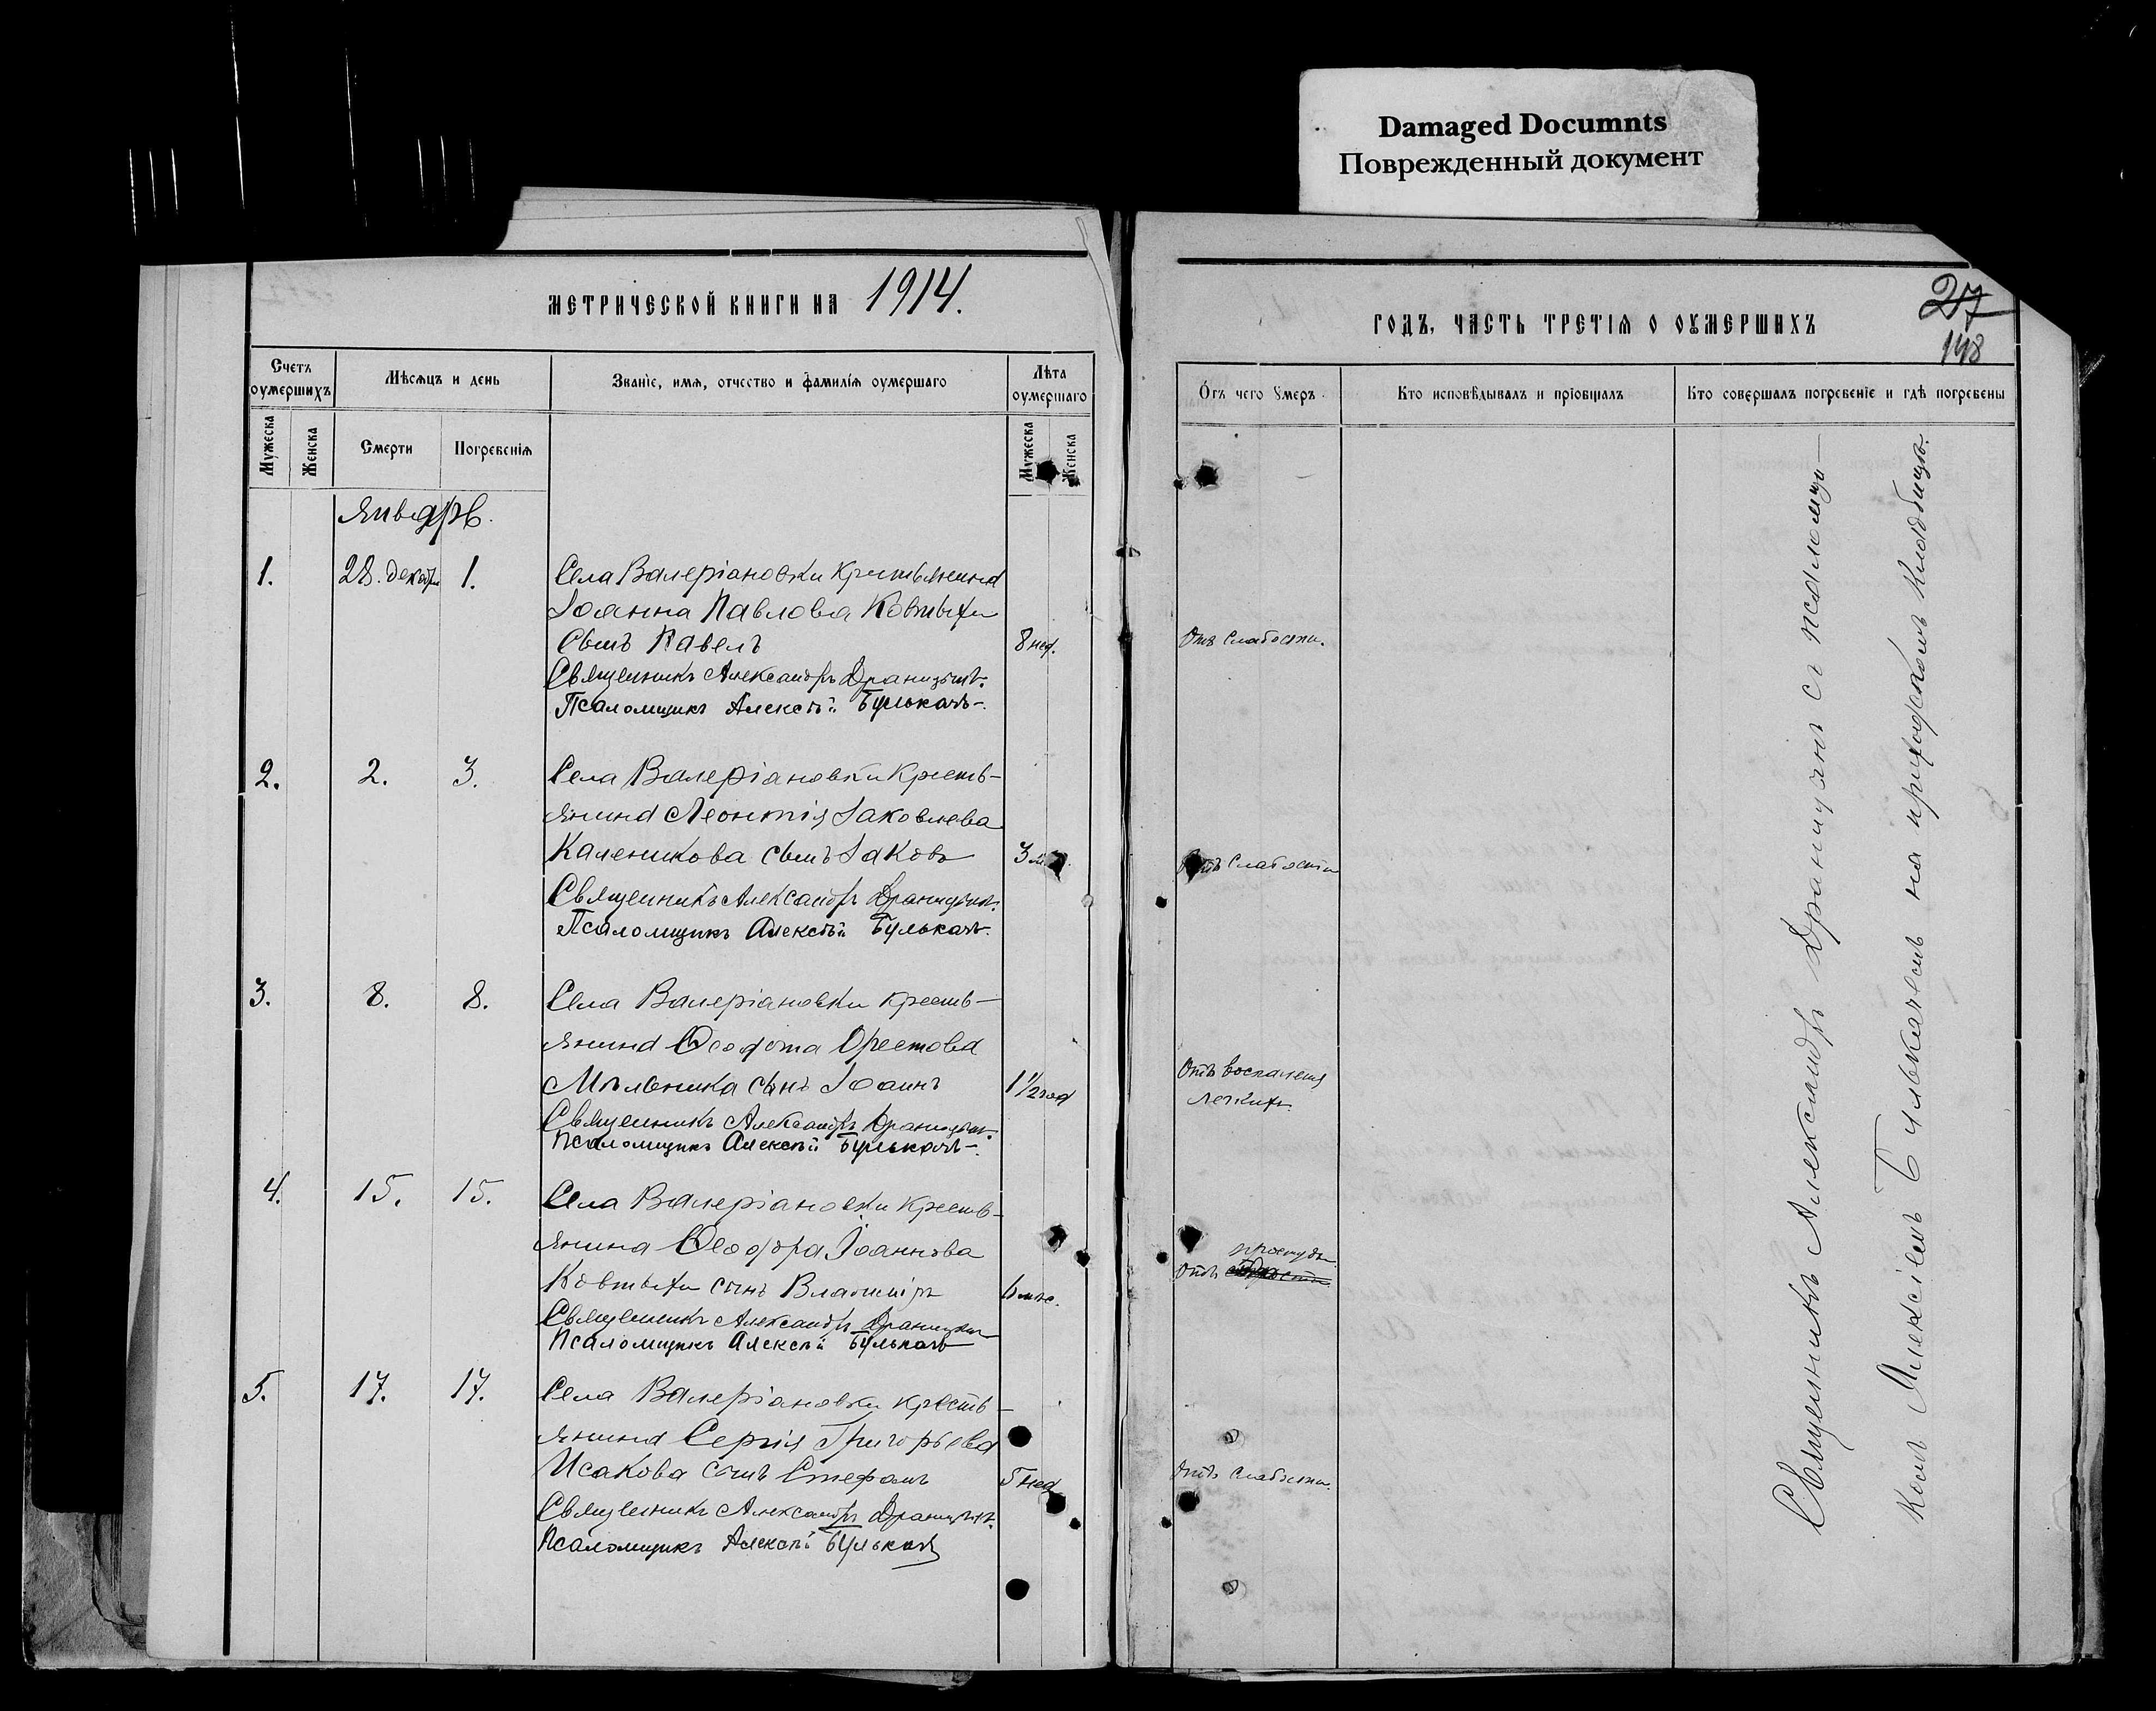 Damaged Documnts
Поврежденный документ
МЕТРИЧЕСКОЙ КНИГИ НА 1914.
ГОДЪ, ЧАСТЬ ТРЕТІЯ О ОУМЕРШИХЪ
27
148
Счетъ оумершихъ
Мѣсяцъ и день
Званіе, имя, отчество и фамилія оумершаго
Лѣта оумершаго
Мужеска
Женска
Смерти
Погребенія
Мужеска
Женска
Отъ чего умеръ
Кто исповѣдывалъ и пріобщалъ
Кто совершалъ погребеніе и гдѣ погребены
Январь.
1. 28. декабр. 1. Села Валеріановки крестьянина
Іоанна Павлова Ковтыхи
сынъ Павелъ 8 нед. Отъ слабости.
Священникъ Александръ
Псаломщикъ Алексѣй Булькачъ.
2. 2. 3. Села Валеріановки кресть-
янина Леонтія Іаковлева
Каленикова сынъ Іаковъ 3 Отъ слабости
Священникъ Александръ
Псаломщикъ Алексѣй Булькачъ.
3. 8. 8. Села Валеріановки кресть-
янина Ѳеодота Орестова
Мѣльника сынъ Іоаннъ 1 1/2 год Отъ воспаленія
легкихъ.
Священникъ Александръ
Псаломщикъ Алексѣй Булькачъ.
4. 15. 15. Села Валеріановки кресть-
янина Ѳеодора Іоаннова
простуды
Ковтыхи сынъ Владиміръ 6 мѣс. Отъ
Священникъ Александръ
Псаломщикъ Алексѣй Булькачъ
5. 17. 17. Села Валеріановки кресть-
янина Сергія Григорьева
Исакова сынъ Стефанъ 5 нед Отъ слабости.
Священникъ Александръ
Псаломщикъ Алексѣй Булькачъ
Священникъ Александръ Драницынъ съ псаломщи-
комъ Алексѣемъ Булькачемъ на приходскомъ кладбищѣ.